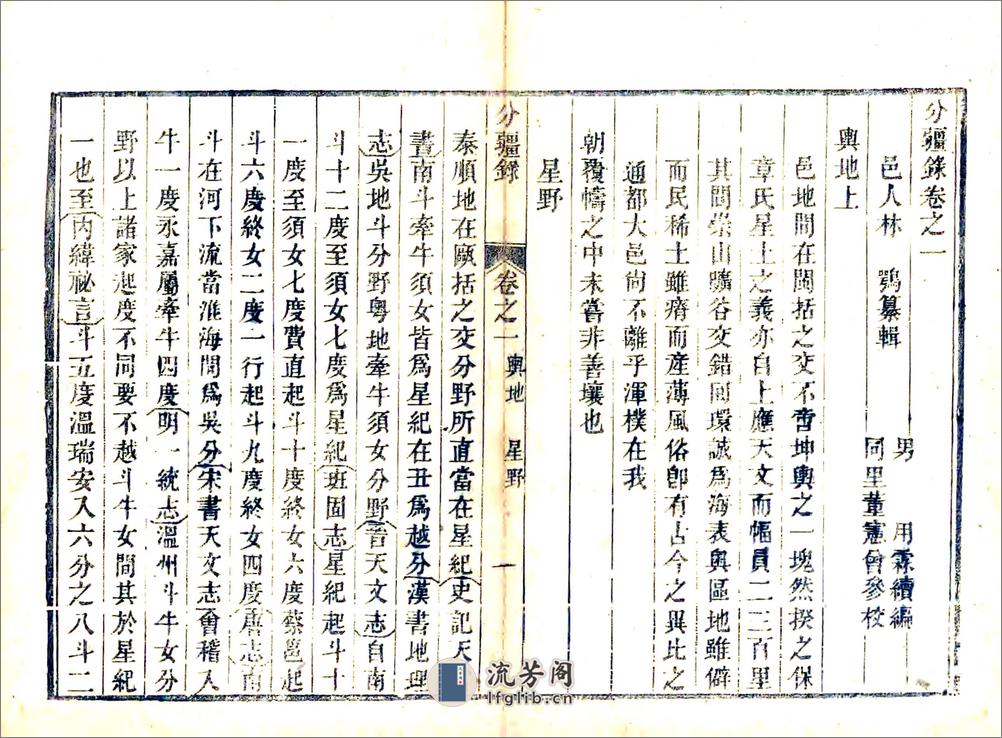 分疆錄卷之一
邑人林 鶚纂輯 男 用霖續編
同里董憲曾參校
輿地上
邑地間在閩括之交不啻坤輿之一塊然揆之保
章氏星土之義亦自上應天文而幅員二三百里
其間崇山曠谷交錯囘環誠為海表輿區地雖僻
而民稀土雖瘠而產薄風俗卽有古今之異比之
通都大邑尙不離乎渾樸在我
朝覆幬之中未嘗非善壤也
星野
分疆錄 卷之一 輿地 星野 一
泰順地在甌括之交分野所直當在星紀史記天官
書南斗牽牛須女皆為星紀在丑為越分漢書地理
志吳地斗分野粤地牽牛須女分野晉天文志自南
斗十二度至須女七度為星紀班固志星紀起斗十
一度至須女七度費直起斗十度終女六度蔡邕起
斗六度終女二度一行起斗九度終女四度唐志南
斗在河下流當淮海間為吳分宋書天文志會稽入
牛一度永嘉屬牽牛四度明一統志溫州斗牛女分
野以上諸家起度不同要不越斗牛女間其於星紀
一也至內緯祕言斗五度溫瑞安入六分之八斗二
流芳阁
lfglib.cn